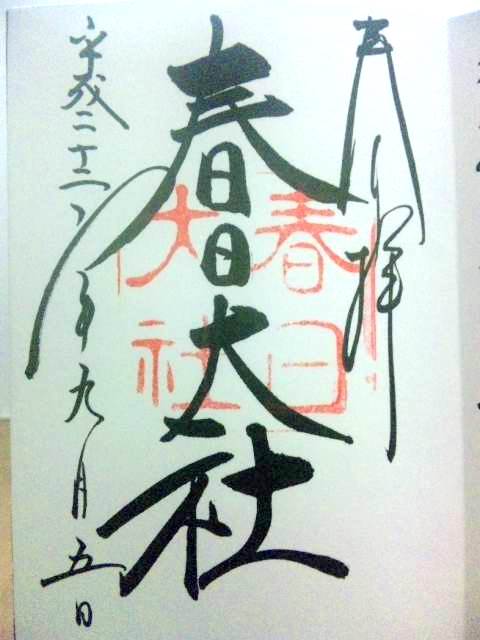 奉拝
春日大社
平成二十三年九月五日
春日
大社